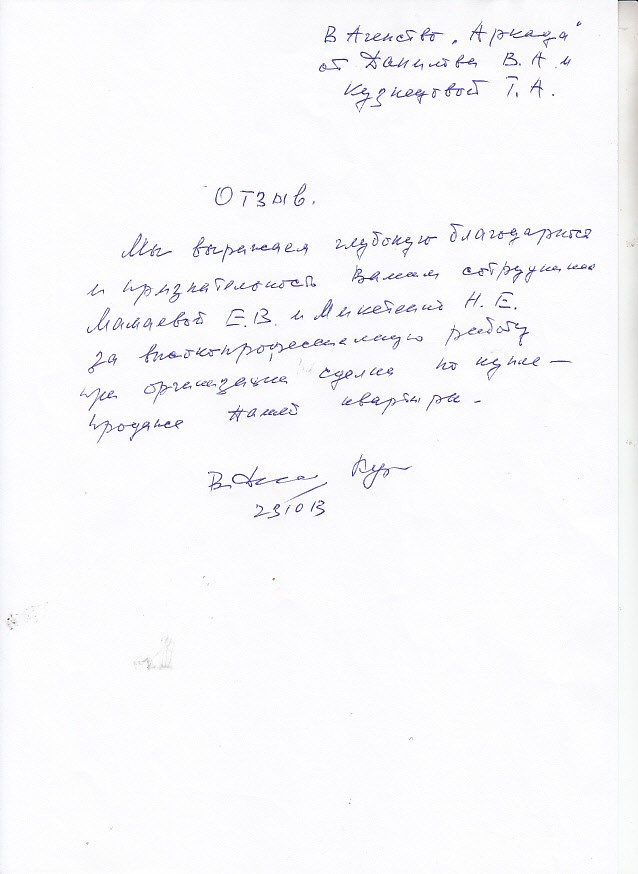 В Агенство „Аркада"
от Данилова В. А и
Кузнецовой Т. А.
Отзыв.
Мы выражаем глубокую благодарность
и признательность Вашим сотрудникам
Мамаевой Е.В. и Н. Е.
за высокопрофессиональную работу
при организации сделки по купле –
продаже нашей квартиры.
231013